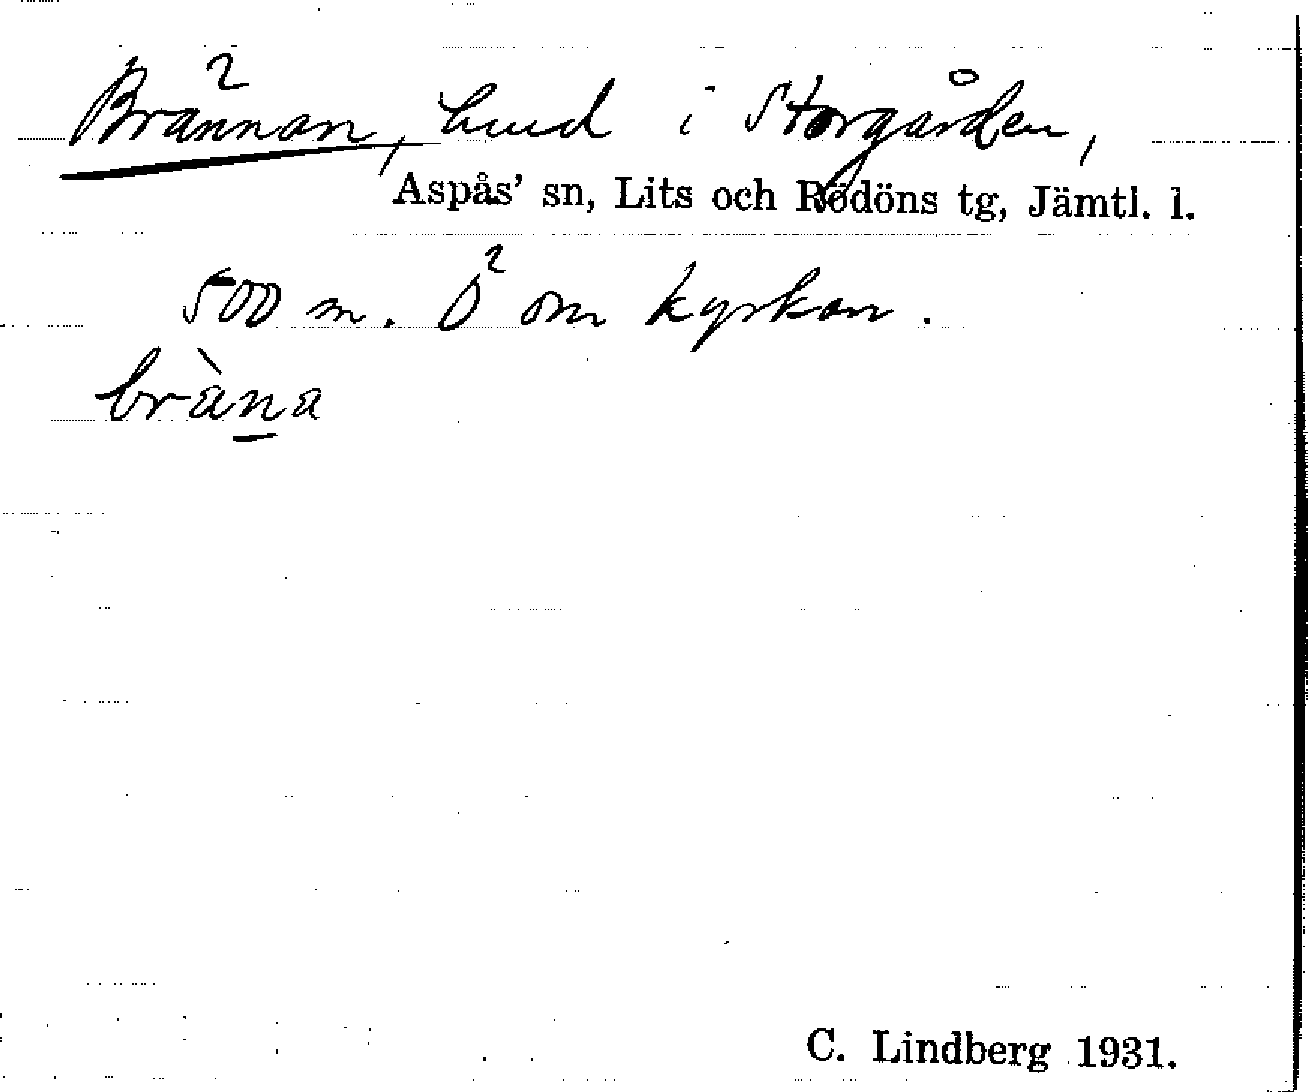 Brännan, lund i Storgården,
Aspås' sn, Lits och Rödöns tg, Jämtl. l.
500 m. Ö om kyrkan.
bràna
C. Lindberg 1931.